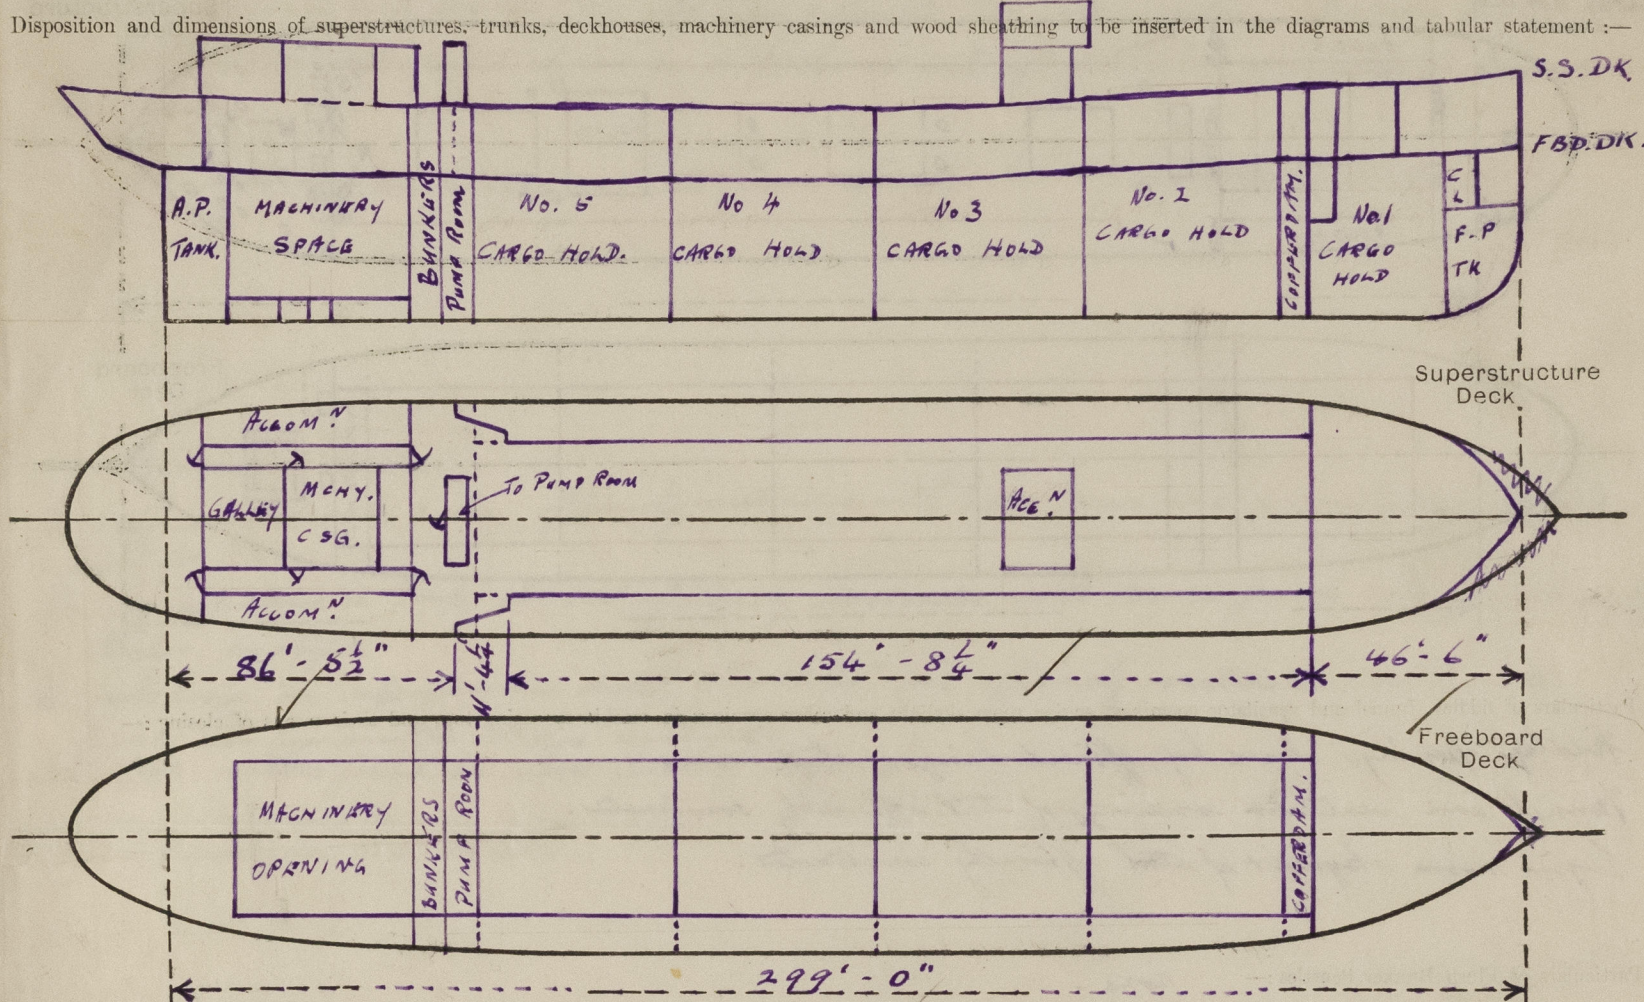 Disposition and dimensions of superstructures, trunks, deckhouses, machinery casings and wood sheathing to be inserted in the diagrams and tabular statement :—
S.S. DK.
FBD. DK.
A.P.
TANK.
MACHINERY
SPACE
BUNKERS
PUMP ROOM
No. 5
CARGO HOLD.
No 4
CARGO HOLD
No 3
CARGO HOLD
No. 2
CARGO HOLD
COFFERDAM.
No1
CARGO
HOLD
C
L
F.P
TK
Superstructure
Deck.
ACCOMN.
GALLEY
MCHY.
CSG.
ACCOMN.
TO PUMP ROOM
ACCN.
86'- 5½"
11'-4¼"
154' - 8¼"
46'- 6"
Freeboard
Deck
MACHINERY
OPENING
BUNKERS
PUMP ROOM
COFFERDAM.
299' - 0"